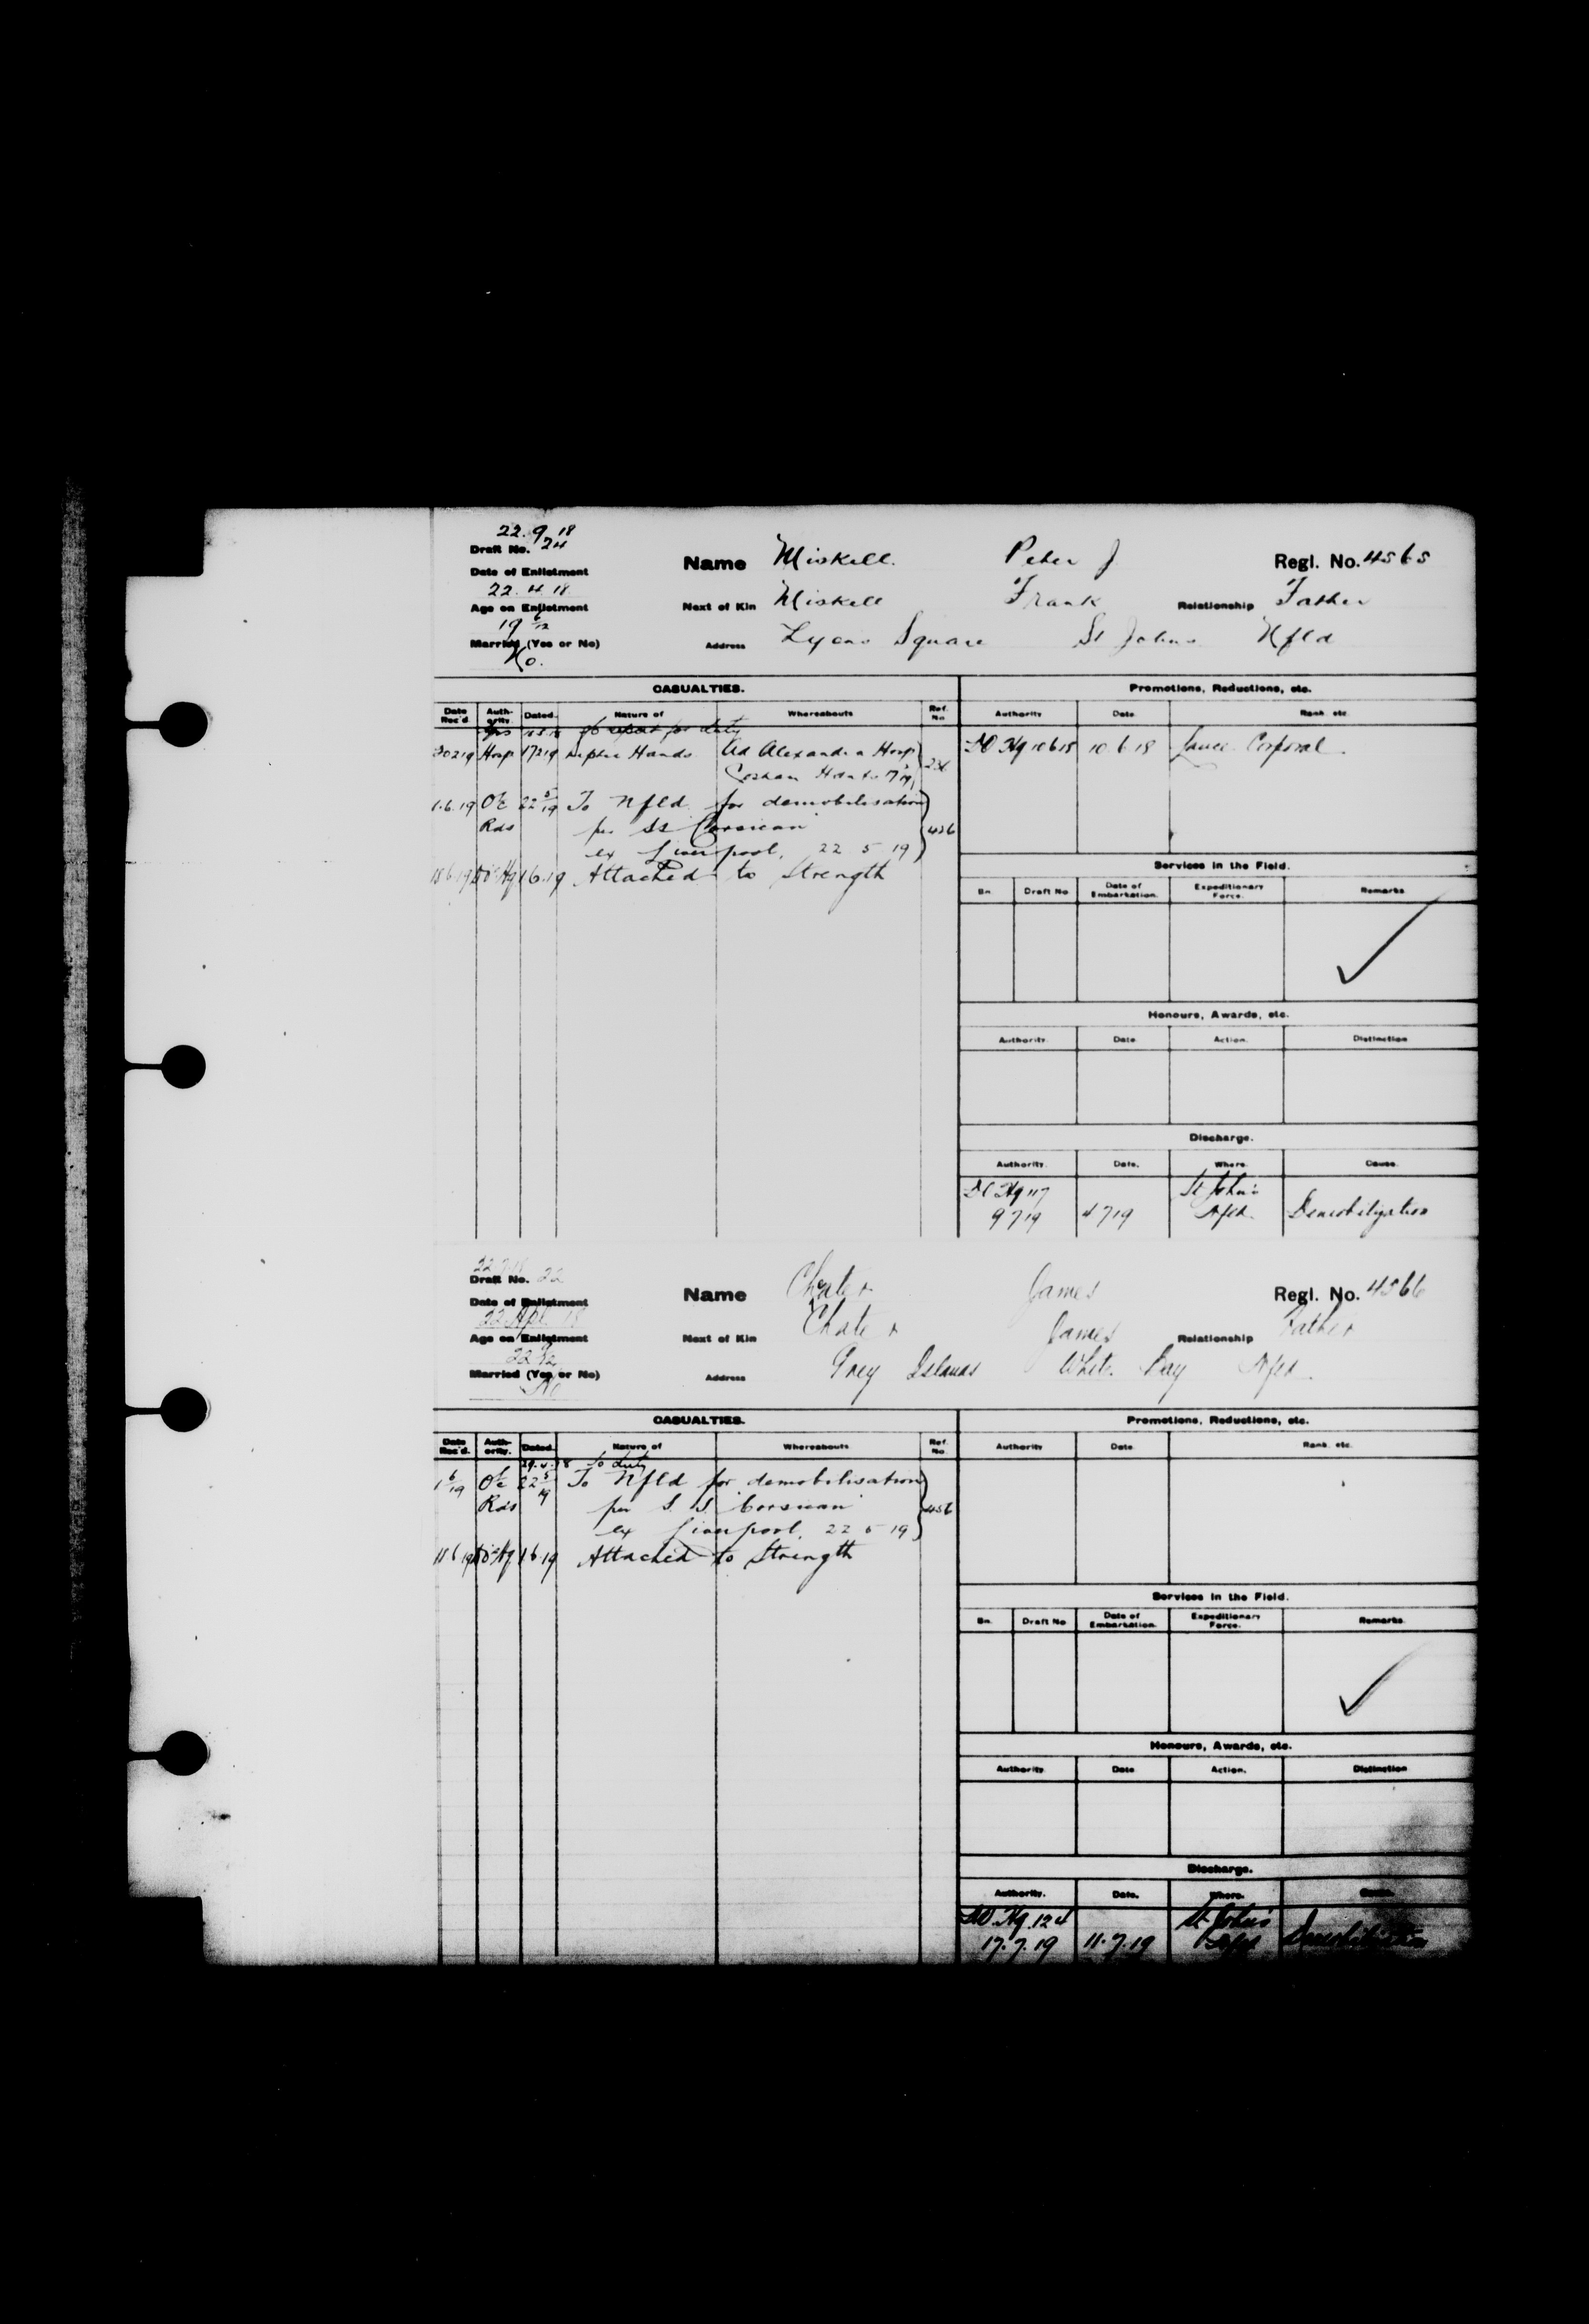 22.9.18
Draft No. 24
Name Miskell. Peter J Regl. No. 4565
Date of Enlistment
22.4.18
Next of Kin Miskell Frank Relationship Father
Age on Enlistment
19 6/12
Married (Yes or No)
No.
Address Lyons Square St Johns Nfld
CASUALTIES.
Promotions, Reductions, etc.
Date Rec'd. Auth-ority. Dated. Nature of Whereabouts Ref. No. Authority Date Rank etc.
to report for duty
20 2 19 Hosp 17 2 19 Septic Hands Ad Alexandra Hosp
Cosham Hants
DO Hq 10 6 18 10.6.18 Lance Corporal
1.6.19 O/c Rds 22 5/19 To Nfld for demobilisation
per SS Corsican 456
ex Liverpool, 22 5 19
18 6 19 DO Hq 1 6.19 Attached to Strength
Services in the Field.
Bn. Draft No Date of Embarkation. Expeditionary Force. Remarks
Honours, Awards, etc.
Authority. Date. Action. Distinction
Discharge.
Authority. Date. Where. Cause.
DO Hq 117
9 7 19 4 7 19 St John's Nfld. Demobilization
Draft No. 22
Name Chater James Regl. No. 4566
Date of Enlistment
22 Apl 18
Next of Kin Chater James Relationship Father
Age on Enlistment
Married (Yes or No)
No
Address Grey Islands White Bay Nfld.
CASUALTIES.
Promotions, Reductions, etc.
Date Rec'd. Auth-ority. Dated. Nature of Whereabouts Ref. No. Authority Date Rank etc.
29.4.18 to duty
1 6/19 O/c Rds 22 5/19 To Nfld for demobilisation
per S.S. Corsican 456
ex Liverpool, 22 5 19
18 6 19 DO Hq 1 6 19 Attached to Strength
Services in the Field.
Bn. Draft No Date of Embarkation. Expeditionary Force. Remarks
Honours, Awards, etc.
Authority Date Action. Distinction
Discharge.
Authority. Date. Where. Cause.
DO Hq. 124
17.7.19 11.7.19 St John's Nfld Demobilization